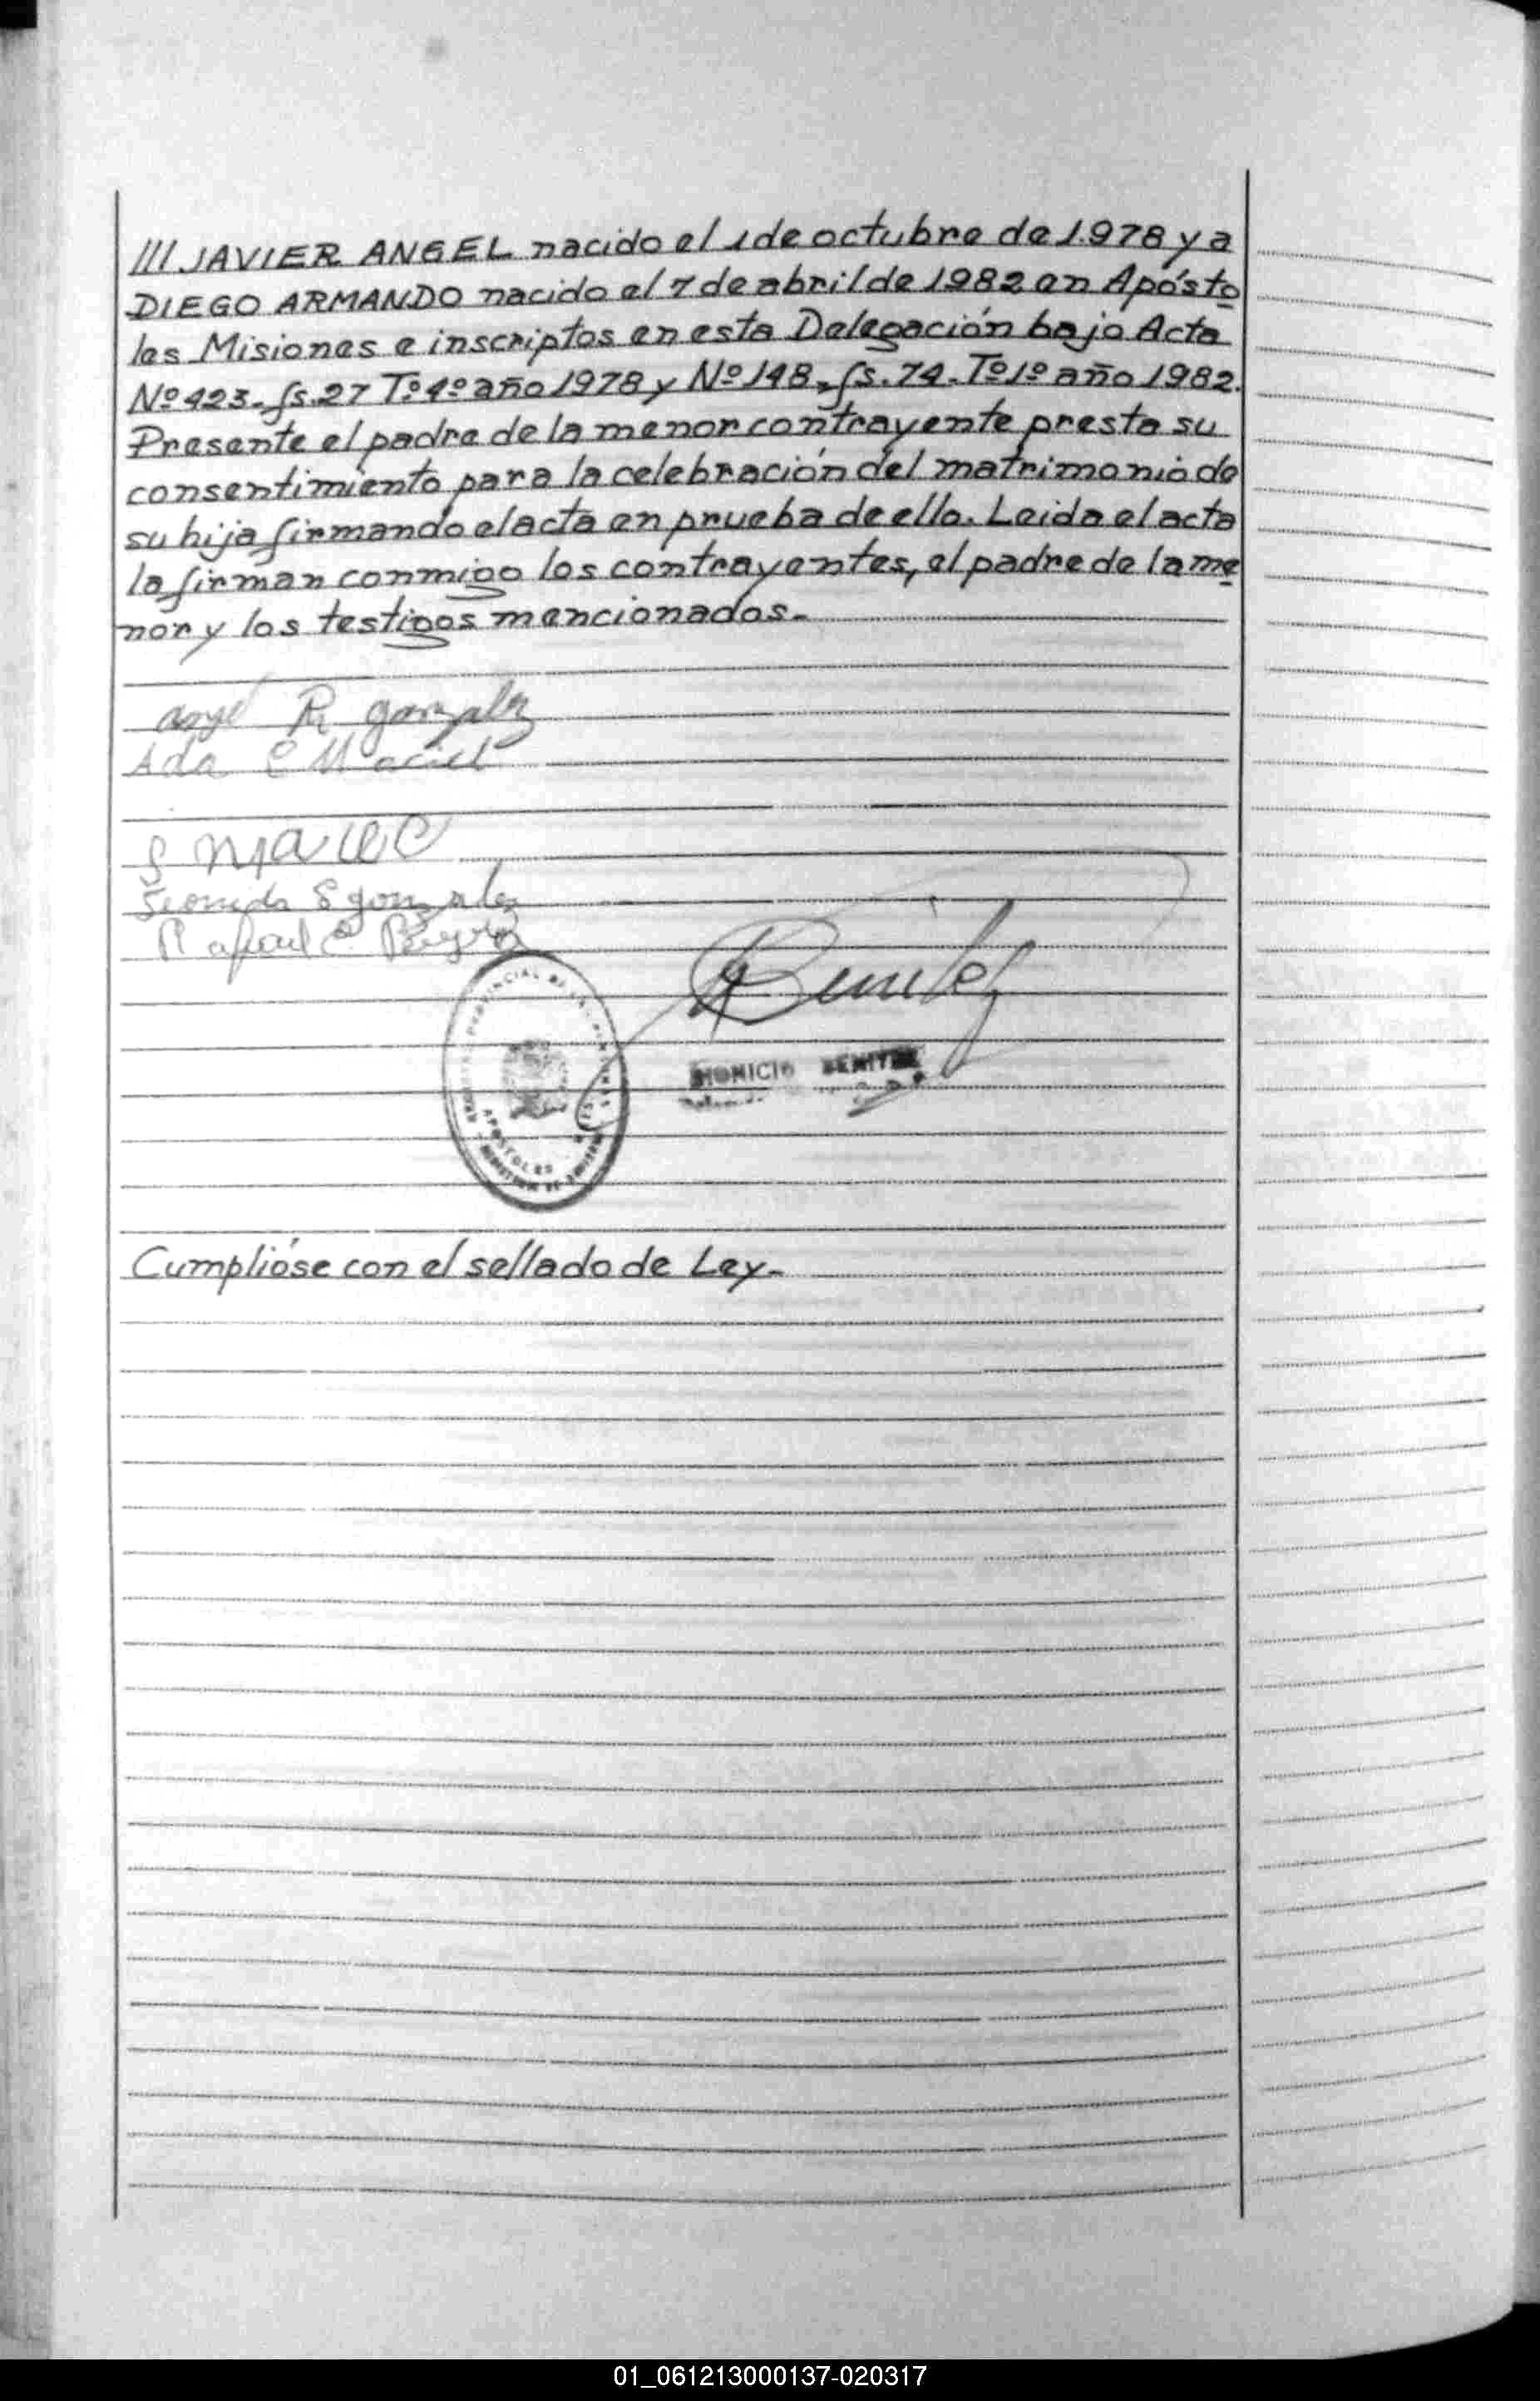 /// JAVIER ANGEL nacido el 1 de octubre de 1.978 y a
DIEGO ARMANDO nacido el 7 de abril de 1982 en Apósto
les Misiones e inscriptos en esta Delegación bajo Acta
Nº 423. fs. 27 Tº 4º año 1978 y Nº 148, fs. 74. Tº 1º año 1982.
Presente el padre de la menor contrayente presta su
consentimiento para la celebración del matrimonio de
su hija firmando el acta en prueba de ello. Leida el acta
la firman conmigo los contrayentes, el padre de la me
nor y los testigos mencionados.-
Angel R gonzalez
Ada E Maciel
S
S gonzalez
Rafael E.
Benitez
DIONICIO BENITEZ
PROVINCIAL DE LAS PERSONAS
APOSTOLES
Cumplióse con el sellado de Ley.-
01_061213000137-020317